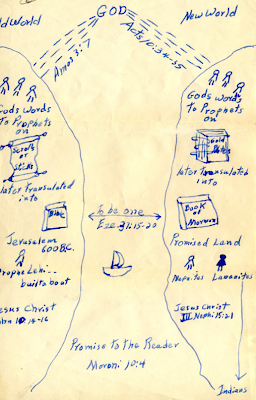 ld World
GOD
New World
Amos 3:7
Acts 10:34-35
Gods Words
To Prophets
on
Scrolls
or
Sticks
later Translated
into
Bible
Jerusalem
600 B.C.
Prophet Lehi
built a boat
esus Christ
ohn 10:14-16
To be one
Eze-37:15-20
Gods words
To Prophets
on
Gold
Plates
later Translated
into
Book
of
Mormon
Promised Land
Nephites Lamanites
Jesus Christ
III Nephi 15:21
Promise to the Reader
Moroni 10:4
Indians